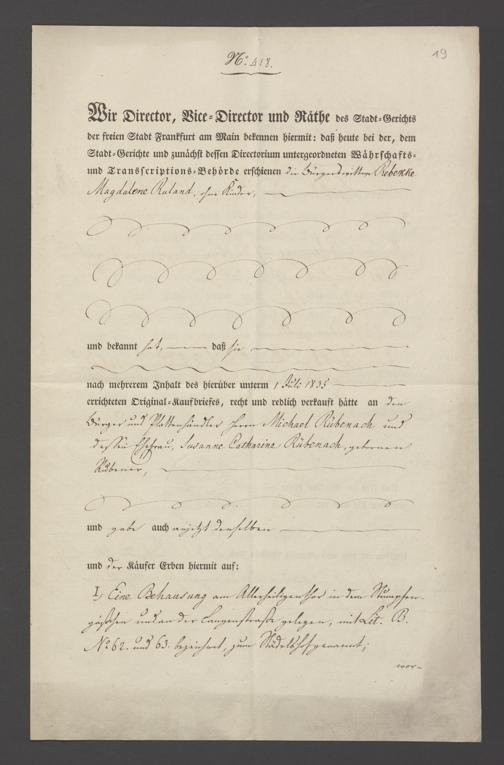 19
No. 418.
Wir Director, Vice-Director und Räthe des Stadt-Gerichts
der freien Stadt Frankfurt am Main bekennen hiermit: daß heute bei der, dem
Stadt-Gerichte und zunächst dessen Directorium untergeordneten Währschafts-
und Transscriptions-Behörde erschienen die Bürgerswittwe Rebekke
Magdalene Ruland, ohne Kinder,
und bekannt hat, daß sie
nach mehrerem Inhalt des hierüber unterm 1 Juli 1835
errichteten Original-Kaufbriefes, recht und redlich verkauft hätte an den
Bürger und Plattenhändler Herrn Michael Rübenach und
dessen Ehefrau, Susanne Catharine Rübenach, geborenen
und gabe auch anjetzt denselben
und der Käufer Erben hiermit auf:
1) Eine Behausung am Allerheiligenthor in dem Stumpfen-
gäßchen und an der Langenstraße gelegen, mit Lit. B.
No 62. und 63. bezeichnet, zum Städelshof genannt;
wor-